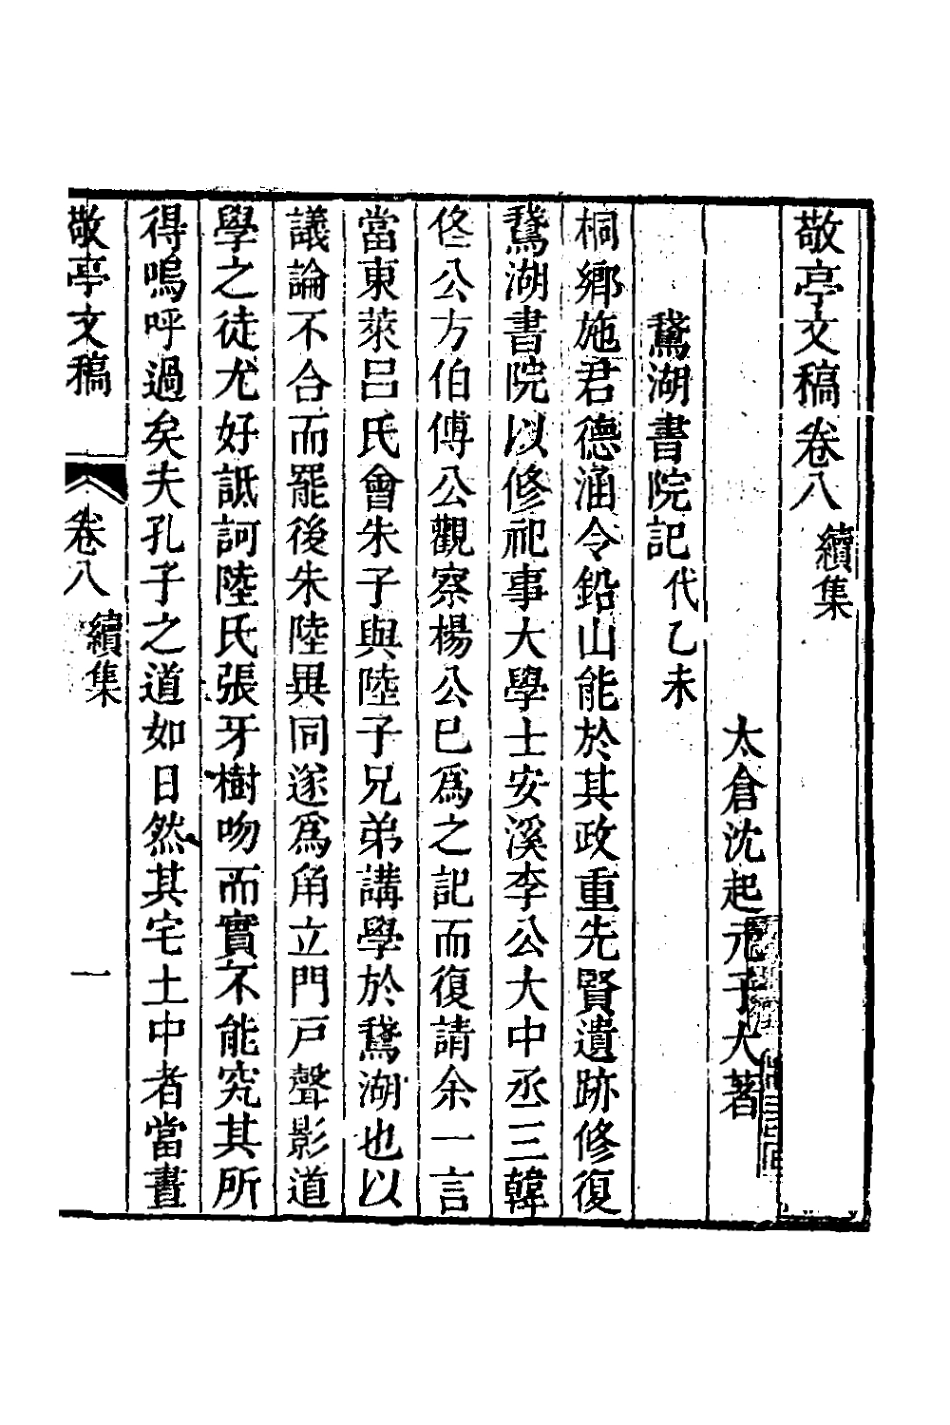 敬亭文稿卷八 續集
太倉沈起元子大著
鵞湖書院記 代乙未
桐鄉施君德涵令鉛山能於其政重先賢遺跡修復
鵞湖書院以修祀事大學士安溪李公大中丞三韓
佟公方伯傅公觀察楊公已爲之記而復請余一言
當東萊呂氏會朱子與陸子兄弟講學於鵞湖也以
議論不合而罷後朱陸異同遂爲角立門戸聲影道
學之徒尤好詆訶陸氏張牙樹吻而實不能究其所
得嗚呼過矣夫孔子之道如日然其宅土中者當晝
敬亭文稿 卷八 續集 一